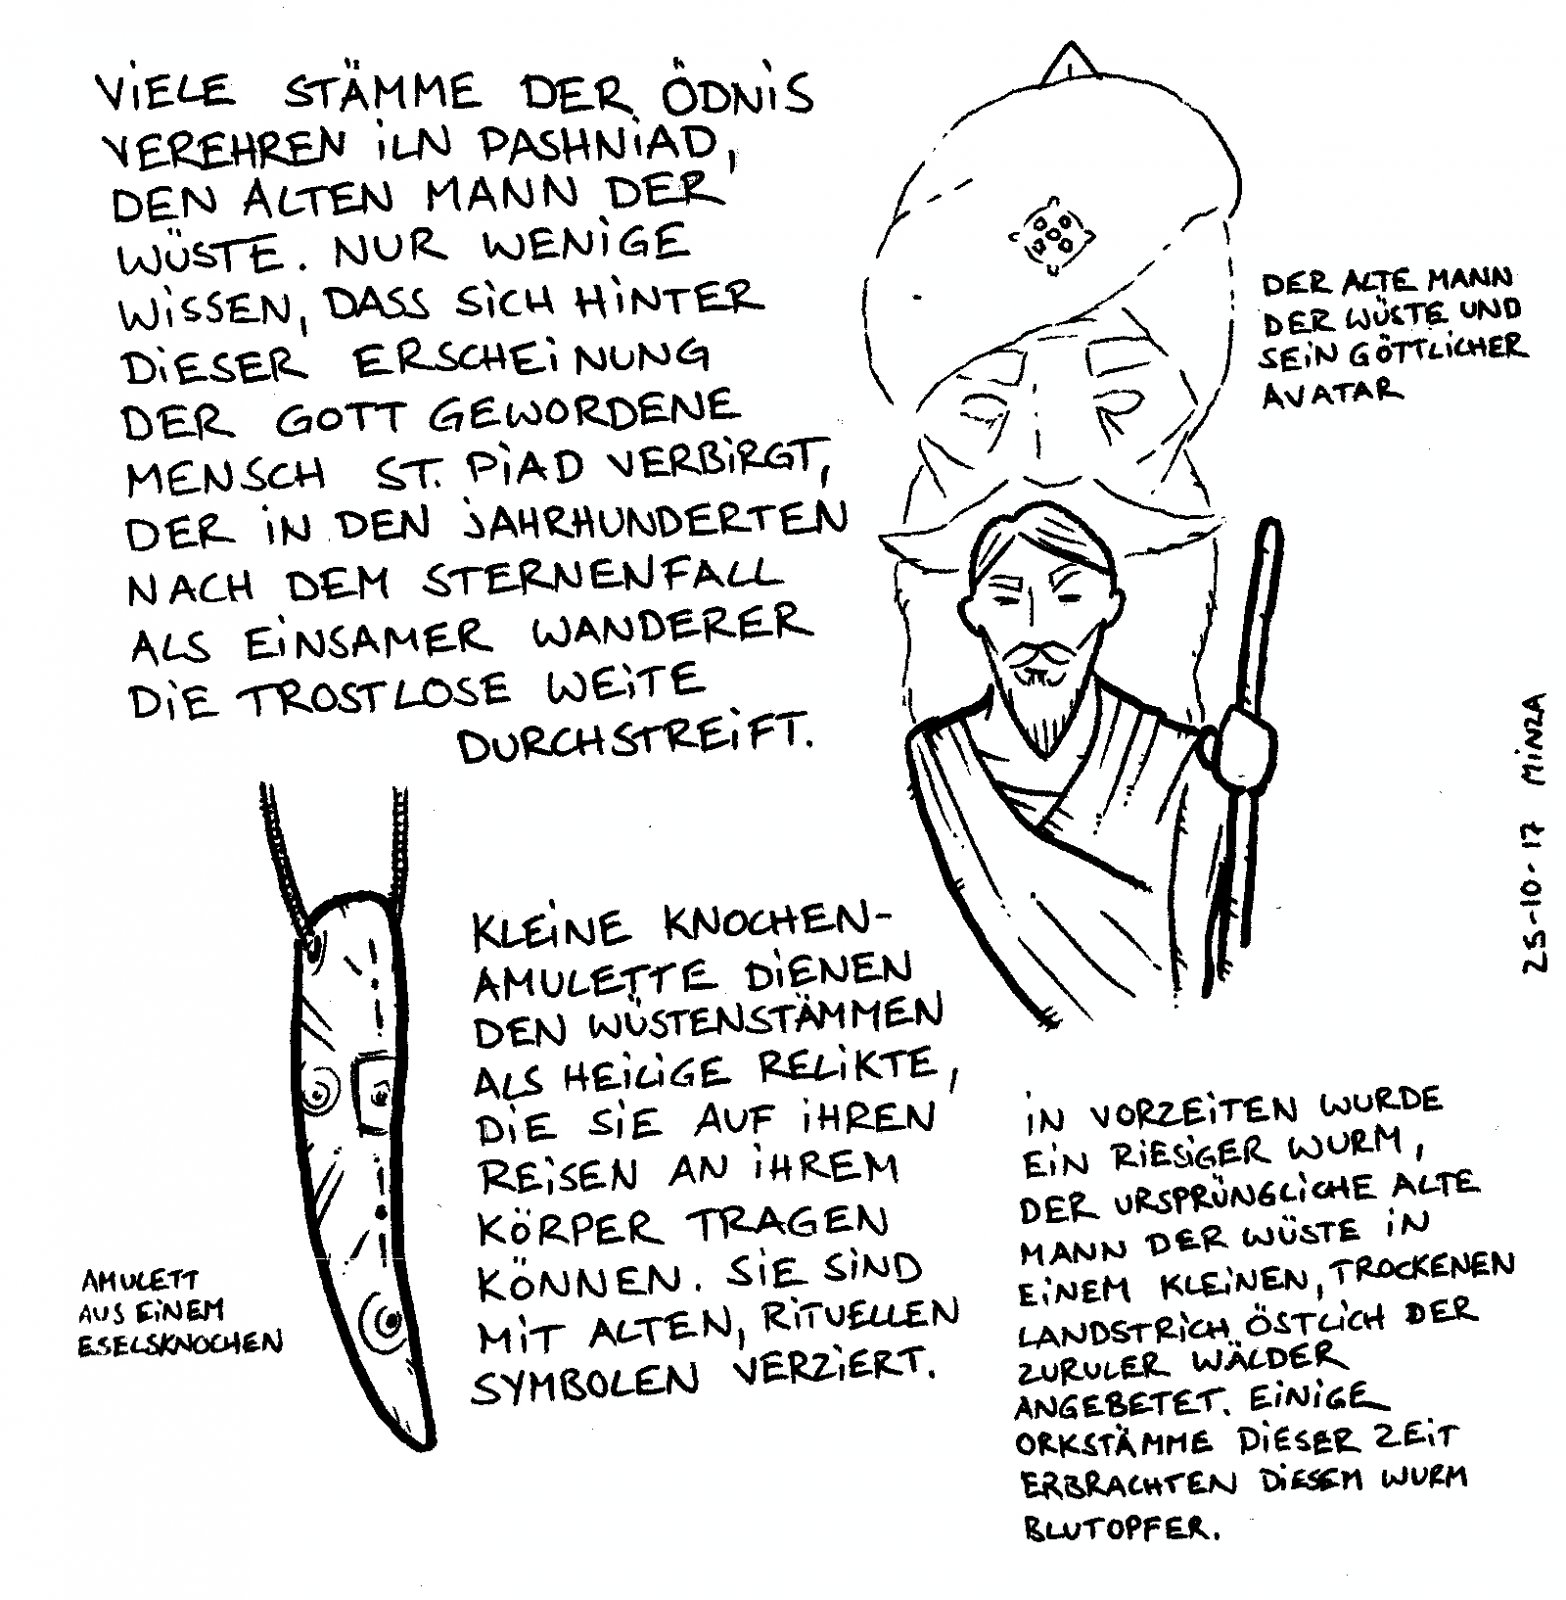 ViELE STÄMME DER ÖDNiS
VEREHREN iLN PASHNiAD,
DEN ALTEN MANN DER
WÜSTE. NUR WENiGE
WiSSEN, DASS SiCH HiNTER
DiESER ERSCHEiNUNG
DER GOTT GEWORDENE
MENSCH ST. PiAD VERBiRGT,
DER iN DEN JAHRHUNDERTEN
NACH DEM STERNENFALL
ALS EiNSAMER WANDERER
DiE TROSTLOSE WEiTE
DURCHSTREiFT.
DER ALTE MANN
DER WÜSTE UND
SEiN GÖTTLiCHER
AVATAR
25-10-17 MiNZA
KLEiNE KNOCHEN-
AMULETTE DiENEN
DEN WÜSTENSTÄMMEN
ALS HEiLiGE RELiKTE,
DiE SiE AUF iHREN
REiSEN AN iHREM
KÖRPER TRAGEN
KÖNNEN. SiE SiND
MiT ALTEN, RiTUELLEN
SYMBOLEN VERZiERT.
AMULETT
AUS EiNEM
ESELSKNOCHEN
iN VORZEiTEN WURDE
EiN RiESiGER WURM,
DER URSPRÜNGLiCHE ALTE
MANN DER WÜSTE iN
EiNEM KLEiNEN, TROCKENEN
LANDSTRiCH ÖSTLiCH DER
ZURULER WÄLDER
ANGEBETET. EiNiGE
ORKSTÄMME DiESER ZEiT
ERBRACHTEN DiESEM WURM
BLUTOPFER.